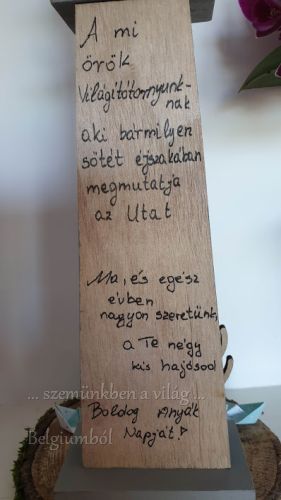 A mi
örök
Világítótornyunk-
nak
aki bármilyen
sötét éjszakában
megmutatja
az Utat
Ma, és egész
évben
nagyon szeretünk,
a Te négy
kis hajósod
... szemünkben a világ ...
Boldog Anyák
Napját!
Belgiumból